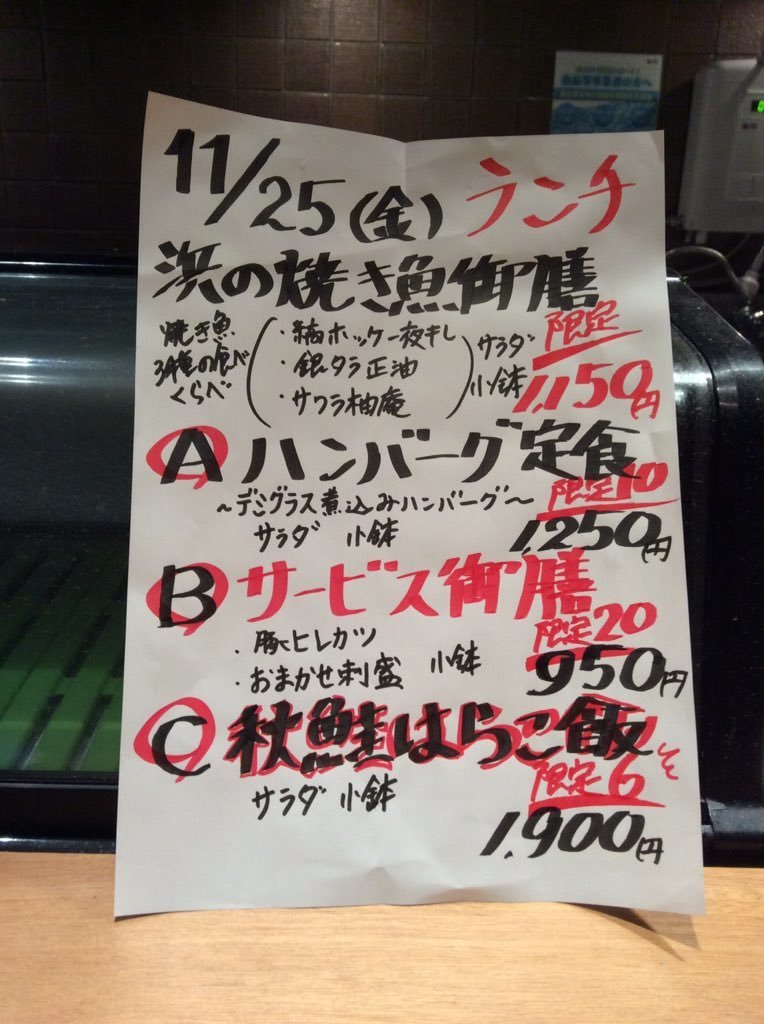 11/25(金) ランチ
浜の焼き魚御膳
焼き魚
3種の食べ
くらべ
・縞ホッケ一夜干し
・銀ダラ正油
・サワラ柚庵
サラダ
小鉢
限定
1,150円
A ハンバーグ定食
～デミグラス煮込みハンバーグ～
限定10
サラダ 小鉢
1,250円
B サービス御膳
限定20
・豚ヒレカツ
・おまかせ刺盛 小鉢
950円
C 秋鮭はらこ飯
限定6
サラダ 小鉢
1,900円